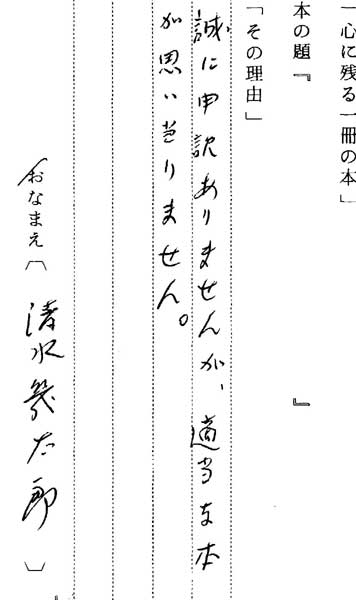 一心に残る一冊の本」
本の題『　　　』
「その理由」
誠に申訳ありませんが、適当な本
が思い当りません。
おなまえ〔清水幾太郎〕